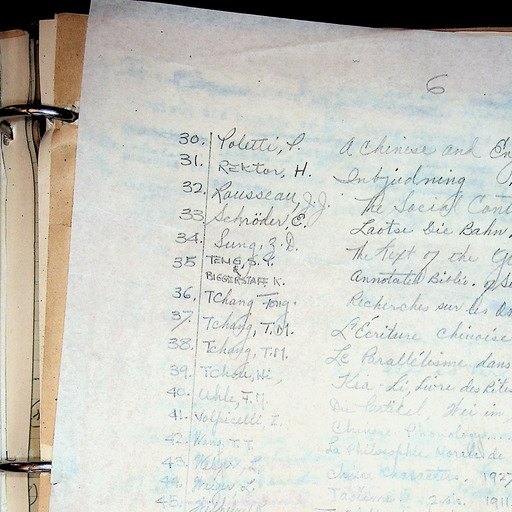 6
30. Poletti, P. A Chinese and En
31. REKTOR, H. Inbjudning
32. Rousseau, J.J. The Social Cont
33. Schröder, E. Laotse Die Bahn,
34. Sung, Z. D. The Text of the
35 TENG, S.Y. & BIGGERSTAFF K. Annotated Biblio. of Se
36. TChang Tong. Recherches sur les Os
37. Tchang, T.M. L'Écriture chinoise
38. Tchang, T.M. Le Parallélisme dans
39. Tchou, Hi, Kia-Li, Livre des Rites
40. Uhle, F.M. Die Partikel Wei im
41. Volpicelli, Z. Chinese Phonology
42. Wang, T.T. La Philosophie Morale de
43. L. Chinese Characters, 1927
44. Wieger L. Taoïsme. 2 vols. 1911
45.